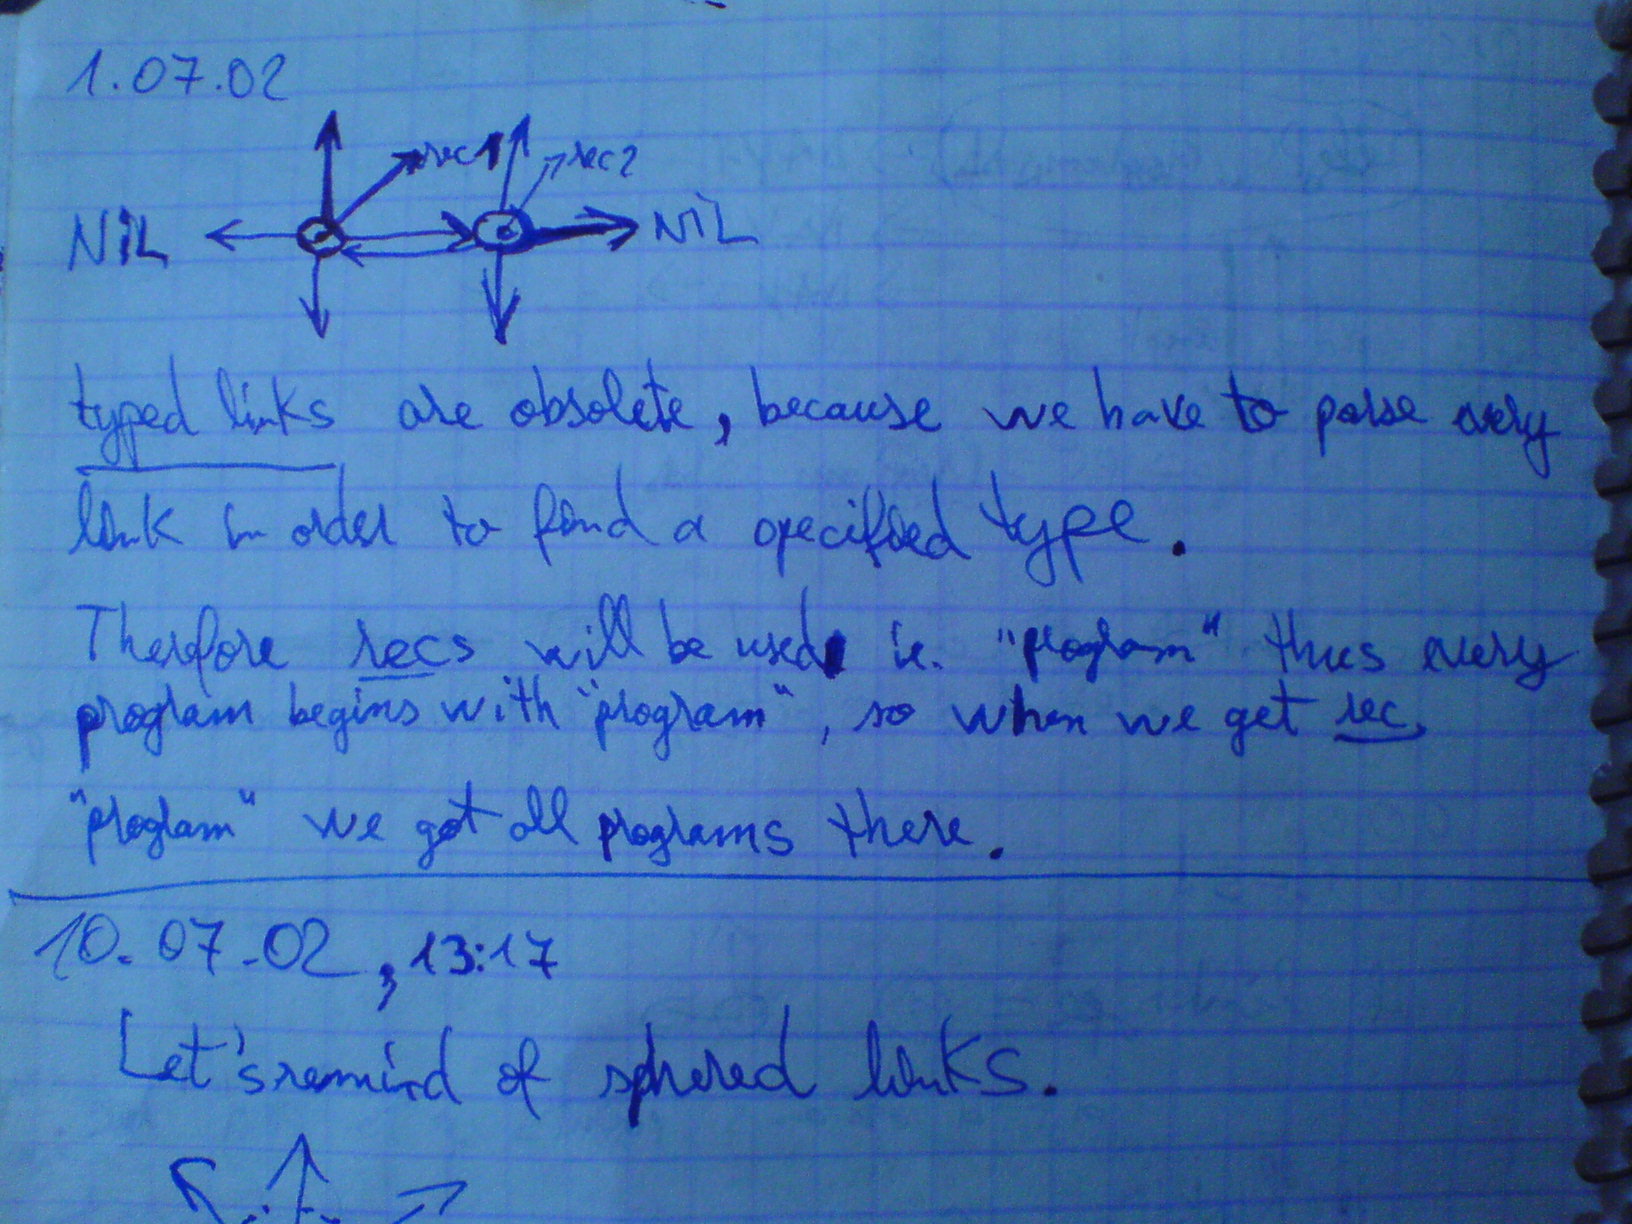 1.07.02
rec1 rec2
NiL NiL
typed links are obsolete, because we have to parse every
link in order to find a specified type.
Therefore recs will be used ie. "program" thus every
program begins with "program", so when we get rec
"program" we got all programs there.
10.07.02, 13:17
Let's remind of sphered links.